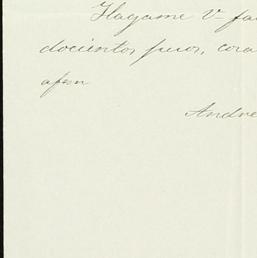 Hagame V- fa
docientos pesos, cora
Andre